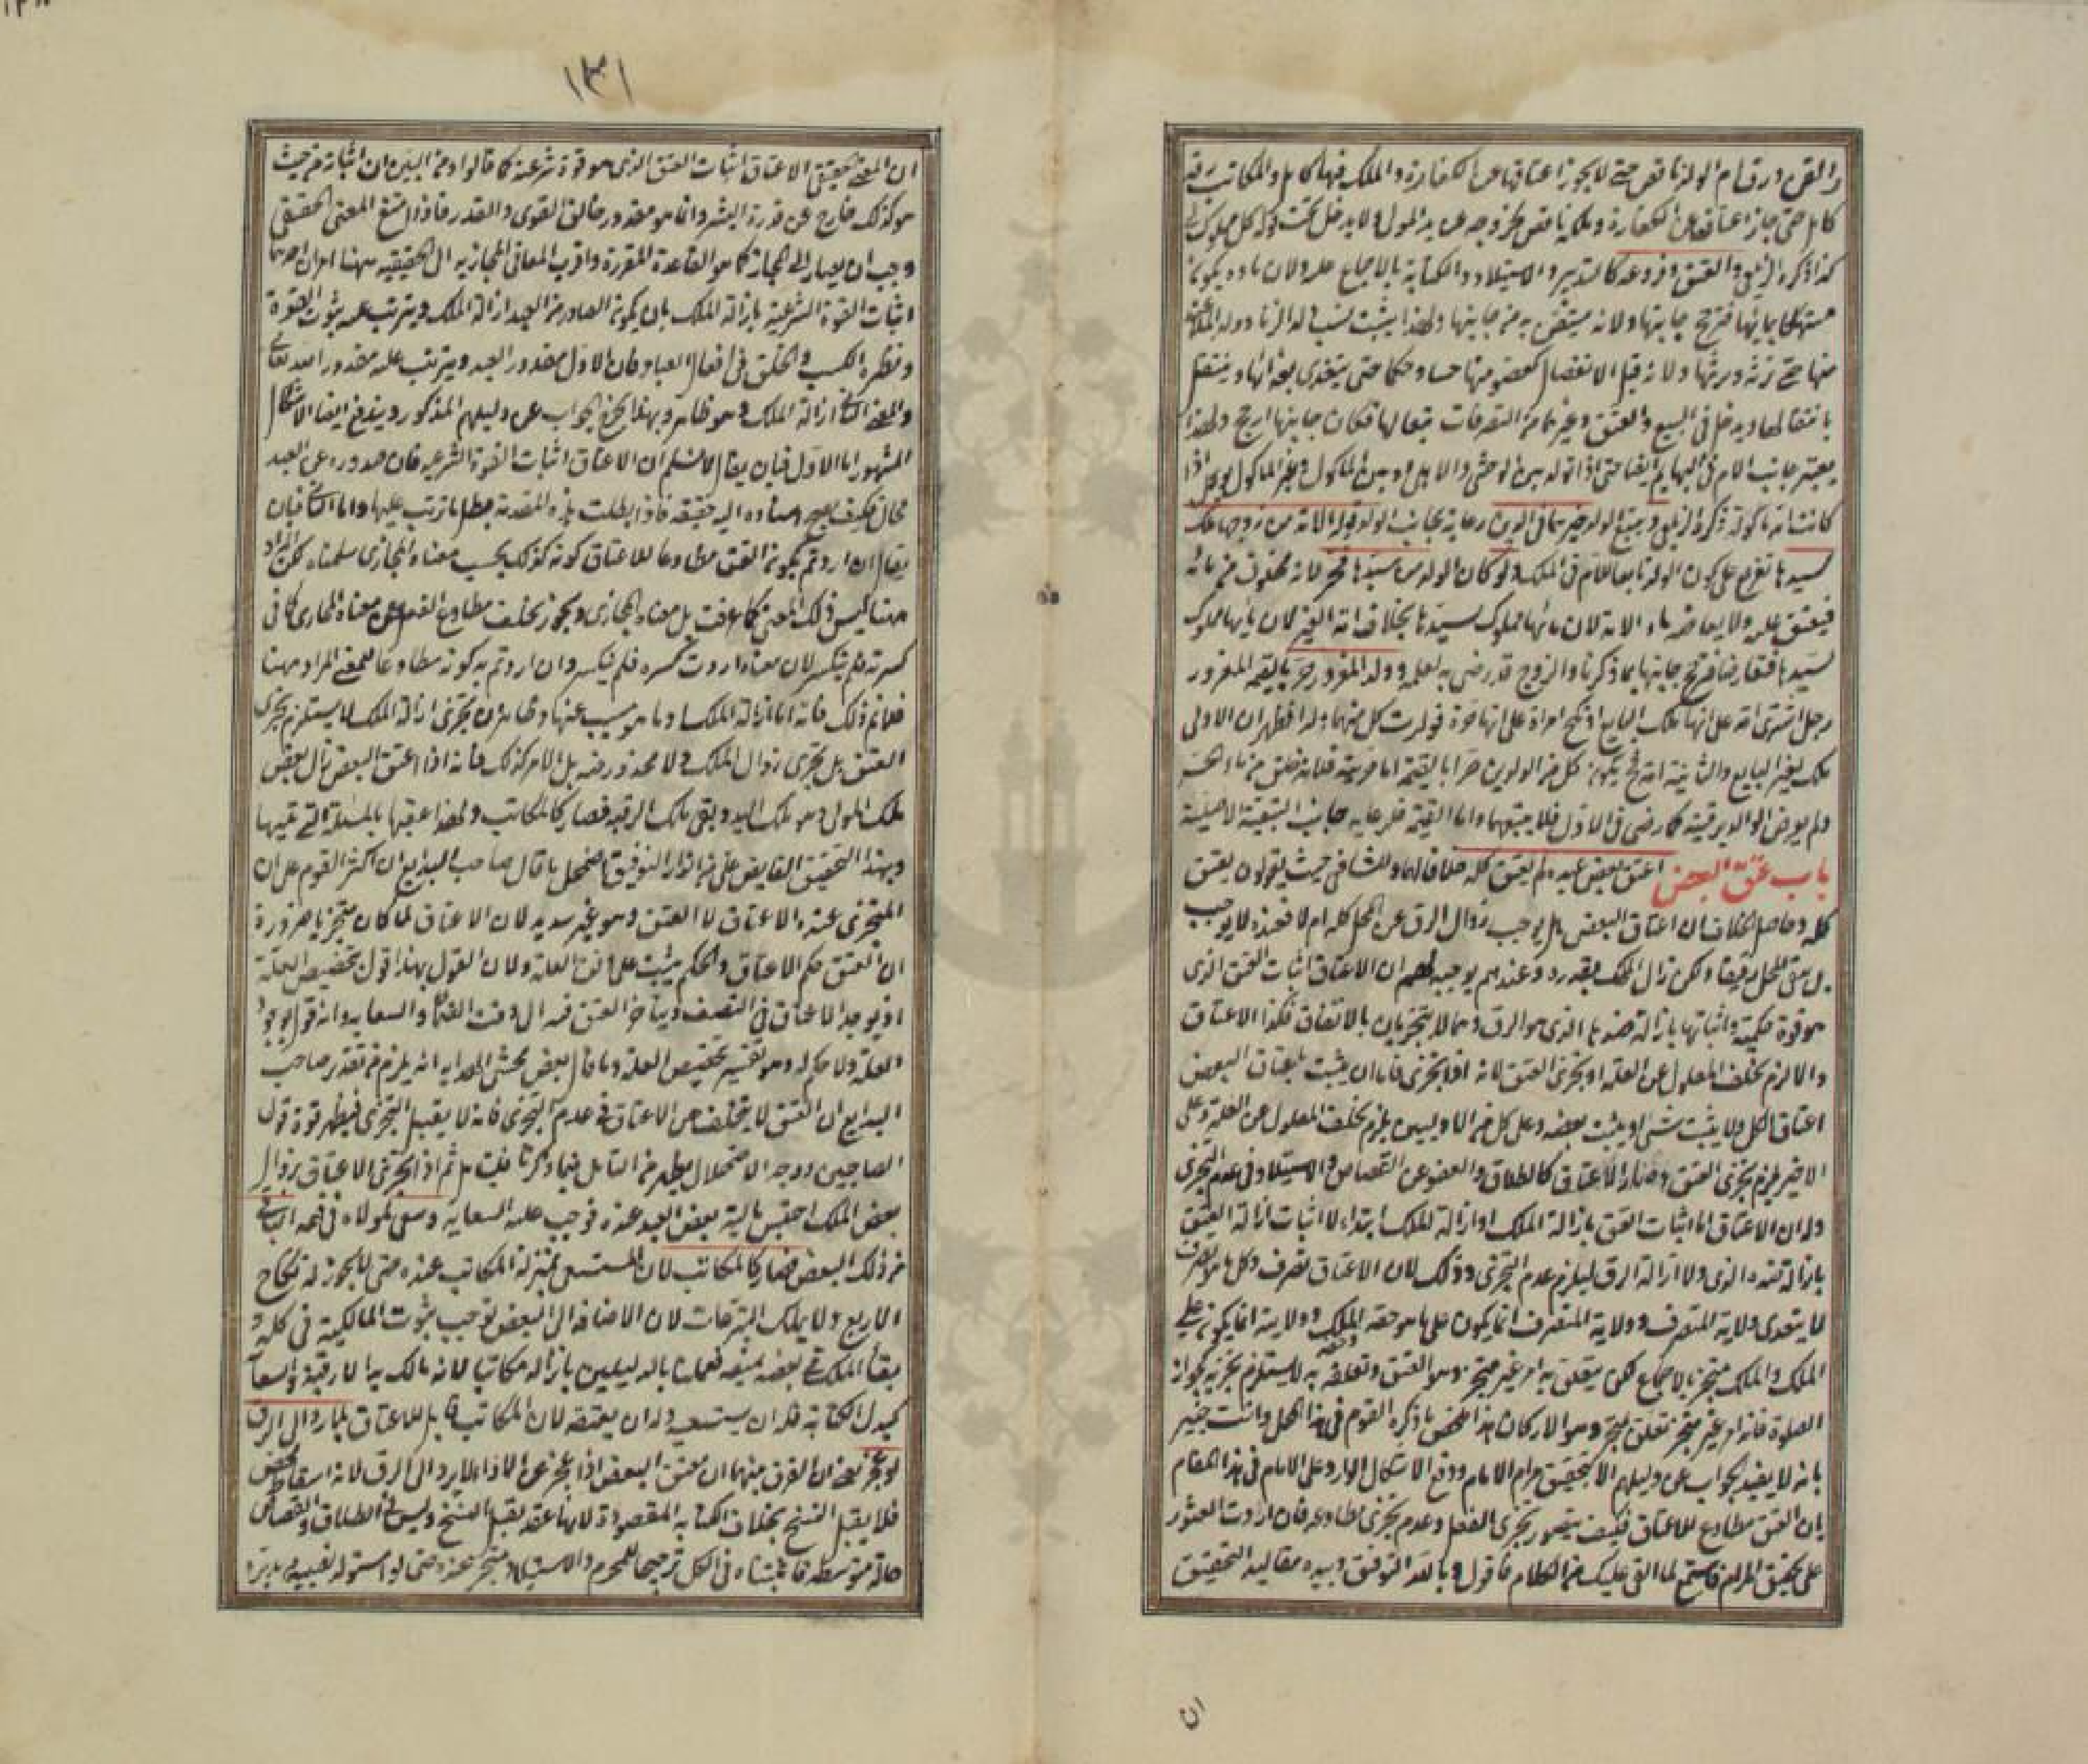 والقن ورق ام الولد ناقص حتى لا يجوز اعتاقها عن الكفارة والملك فيها كامل والمكاتب رقه
كامل حتى جاز اعتاقه عن الكفارة وملكه ناقص لخروجه عن يد المولى ولا يدخل تحت قوله كل مملوك لي
كذا ذكره الزيلعي والعتق وفروعه كالتدبير والاستيلاد والكتابة بالاجماع عليه ولان ماءه يكون
مستهلكا بمائها فترجح جانبها ولانه متيقن به من جانبها ولهذا يثبت نسب ولد الزنا وولد الملاعنة
منها حتى ترثه ويرثها ولانه قبل الانفصال كعضو منها حسا وحكما حتى يتغذى بغذائها وينتقل
بانتقالها ويدخل في البيع والعتق وغيرهما من التصرفات تبعا لها فكان جانبها ارجح ولهذا
يعتبر جانب الام في البهايم ايضا حتى اذا تولد بين الوحشي والاهلي او بين المأكول وغير المأكول يؤكل اذا
كانت امه مأكولة ذكره الزيلعي ويتبع الولد خيرهما في الدين رعاية لجانب الولد فولد الامة من زوجها ملك
لسيدها تفريع على كون الولد تابعا للام في الملك ولو كان الولد من سيدها فحر لانه مخلوق من مائه
فيعتق عليه ولا يعارضه ماء الامة لان ماءها مملوك لسيدها بخلاف امة الغير لان ماءها مملوك
لسيدها فتعارضا فترجح جانبها بما ذكرنا والزوج قد رضي به لعلمه وولد المغرور حر بالقيمة المغرور
رجل اشترى امة على انها ملك البايع او نكح امرأة على انها حرة فولدت كل منهما ولدا فظهر ان الاولى
ملك لغير البايع والثانية امة فح يكون كل من الولدين حرا بالقيمة اما حريته فلانه خلق من ماء الحر
ولم يرض الوالد برقيته كما رضي في الاول فلا يتبعها واما القيمة فلرعاية جانب التبعية الاصلية
باب عتق البعض اعتق بعض عبده لم يعتق كله خلافا لهما وللشافعي حيث يقولون يعتق
كله وحاصل الخلاف ان اعتاق البعض هل يوجب زوال الرق عن المحل كله ام لا فعنده لا يوجب
بل يبقى المحل رقيقا ولكن زال الملك بقدره وعندهم يوجبه لهم ان الاعتاق اثبات العتق الذي
هو قوة حكمية واثباتها بازالة ضدها الذي هو الرق وهما لا يتجزيان بالاتفاق فكذا الاعتاق
والا لزم تخلف المعلول عن العلة او تجزي العتق لانه اذا تجزى فاما ان يثبت باعتاق البعض
اعتاق الكل ولا يثبت شيء او يثبت بعضه وعلى كل من الاوليين يلزم تخلف المعلول عن العلة وعلى
الاخير يلزم تجزي العتق فصار الاعتاق كالطلاق والعفو عن القصاص والاستيلاد في عدم التجزي
وله ان الاعتاق اما اثبات العتق بازالة الملك او ازالة للملك ابتداء لا اثبات ازالة العتق
بازالة ضده الذي ولا ازالة الرق ليلزم عدم التجزي وذلك لان الاعتاق تصرف وكل ما هو تصرف
لا يتعدى ولاية المتصرف وولاية المتصرف انما يكون على ما هو حقه وحقه الملك وولايته انما يكون على
الملك والملك متجز بالاجماع لكن يتعلق به امر غير متجز وهو العتق وتعلقه به لا يستلزم تجزيه كجواز
الصلوة فانه امر غير متجز تعلق بمتجز وهو الاركان هذا ملخص ما ذكره القوم في هذا المحل وانت خبير
بانه لا يفيد الجواب عن دليلهم الا بتحقيق مرام الامام ودفع الاشكال الوارد على الامام في هذا المقام
بان العتق مطاوع للاعتاق فكيف يتصور تجزي الفعل وعدم تجزي مطاوعه فان اردت العثور
على تحقيق المرام فاستمع لما القي عليك من الكلام فاقول وبالله التوفيق وبيده مقاليد التحقيق
ان
١٣١
ان المعنى الحقيقي الاعتاق اثبات العتق الذي هو قوة شرعية كما قالوا ومن البين ان اثباته من حيث
هو كذلك خارج عن قدرة البشر وانما هو مقدور خالق القوى والقدر فاذا امتنع المعنى الحقيقي
وجب ان يصار الى المجاز كما هو القاعدة المقررة واقرب المعاني المجازية الى الحقيقية ههنا امران احدهما
اثبات القوة الشرعية بازالة الملك بان يكون الصادر من العبد ازالة الملك ويترتب عليه ثبوت القوة
ونظيره الكسب والخلق في افعال العباد فان الاول مقدور العبد ويترتب عليه مقدور الله تعالى
والمعنى الثاني ازالة الملك وهو ظاهر وبهذا يخرج الجواب عن دليلهم المذكور ويندفع ايضا الاشكال
المشهور اما الاول فبان يقال لا نسلم ان الاعتاق اثبات القوة الشرعية فان صدوره عن العبد
محال فكيف يصح اسناده اليه حقيقة فاذا بطلت هذه المقدمة بطل ما ترتب عليها واما الثاني فبان
يقال ان اردتم بكون العتق مطاوعا للاعتاق كونه كذلك بحسب معناه المجازي سلمناه لكن المراد
ههنا ليس ذلك المعنى كما عرفت بل معناه المجازي ويجوز تخلف مطاوع الفعل عن معناه المجازي كما في
كسرته فلم ينكسر لان معناه اردت كسره فلم ينكسر وان اردتم به كونه مطاوعا للمعنى المراد ههنا
فلا نم ذلك فانه اما ازالة الملك او ما هو سبب عنها وظاهر ان تجزي ازالة الملك لا يستلزم تجزي
العتق بل تجزي زوال الملك ولا محذور فيه بل الامر كذلك فانه اذا اعتق البعض زال بعض
ملك المولى وهو ملك اليد وبقي ملك الرقبة فصار كالمكاتب ولهذا عقبها بالمسئلة التي تليها
وبهذا التحقيق الفايض علي من انوار التوفيق اضمحل ما قال صاحب البدايع ان اكثر القوم على ان
المتجزي عنده الاعتاق لا العتق وهو غير سديد لان الاعتاق لما كان متجزيا ضرورة
ان العتق حكم الاعتاق والحكم يثبت على وفق العلة ولان القول بهذا قول بتخصيص العلة
اذ يوجد الاعتاق في النصف ويتأخر العتق فيه الى وقت الضمان والسعاية وانه قول بوجود
العلة ولا حكم له وهو تفسير تخصيص العلة وما قال بعض محشي الهداية انه يلزم من تقدير صاحب
البدايع ان العتق لا يتخلف عن الاعتاق في عدم التجزي فانه لا يقبل التجزي فيظهر قوة قول
الصاحبين ووجه الاضمحلال يظهر من التأمل فيما ذكرنا فليتأمل ثم اذا تجزى الاعتاق بزوال
بعض الملك احتبس مالية بعض العبد عنده فوجب عليه السعاية وسعى لمولاه في قيمة الباقي
من ذلك البعض فصار كالمكاتب لان المستسعى بمنزلة المكاتب عنده حتى لا يجوز له نكاح
الاربع ولا يملك التبرعات لان الاضافة الى البعض توجب ثبوت المالكية في كله و
بقاء الملك في بعضه يمنعه فعملنا بالدليلين بانزاله مكاتبا لانه مالك يدا لا رقبة والسعاية
كبدل الكتابة فله ان يستسعيه وله ان يعتقه لان المكاتب قابل للاعتاق بلا رد الى الرق
لو عجز يعني ان الفرق بينهما ان معتق البعض اذا عجز عن الاداء لا يرد الى الرق لانه اسقاط محض
فلا يقبل الفسخ بخلاف الكتابة المقصودة لانها عقد يقبل الفسخ وليس في الطلاق والقصاص
حالة متوسطة فاثبتناه في الكل ترجيحا للمحرم والاستيلاد متجز عنده حتى لو استولد نصيبه من مدبرة